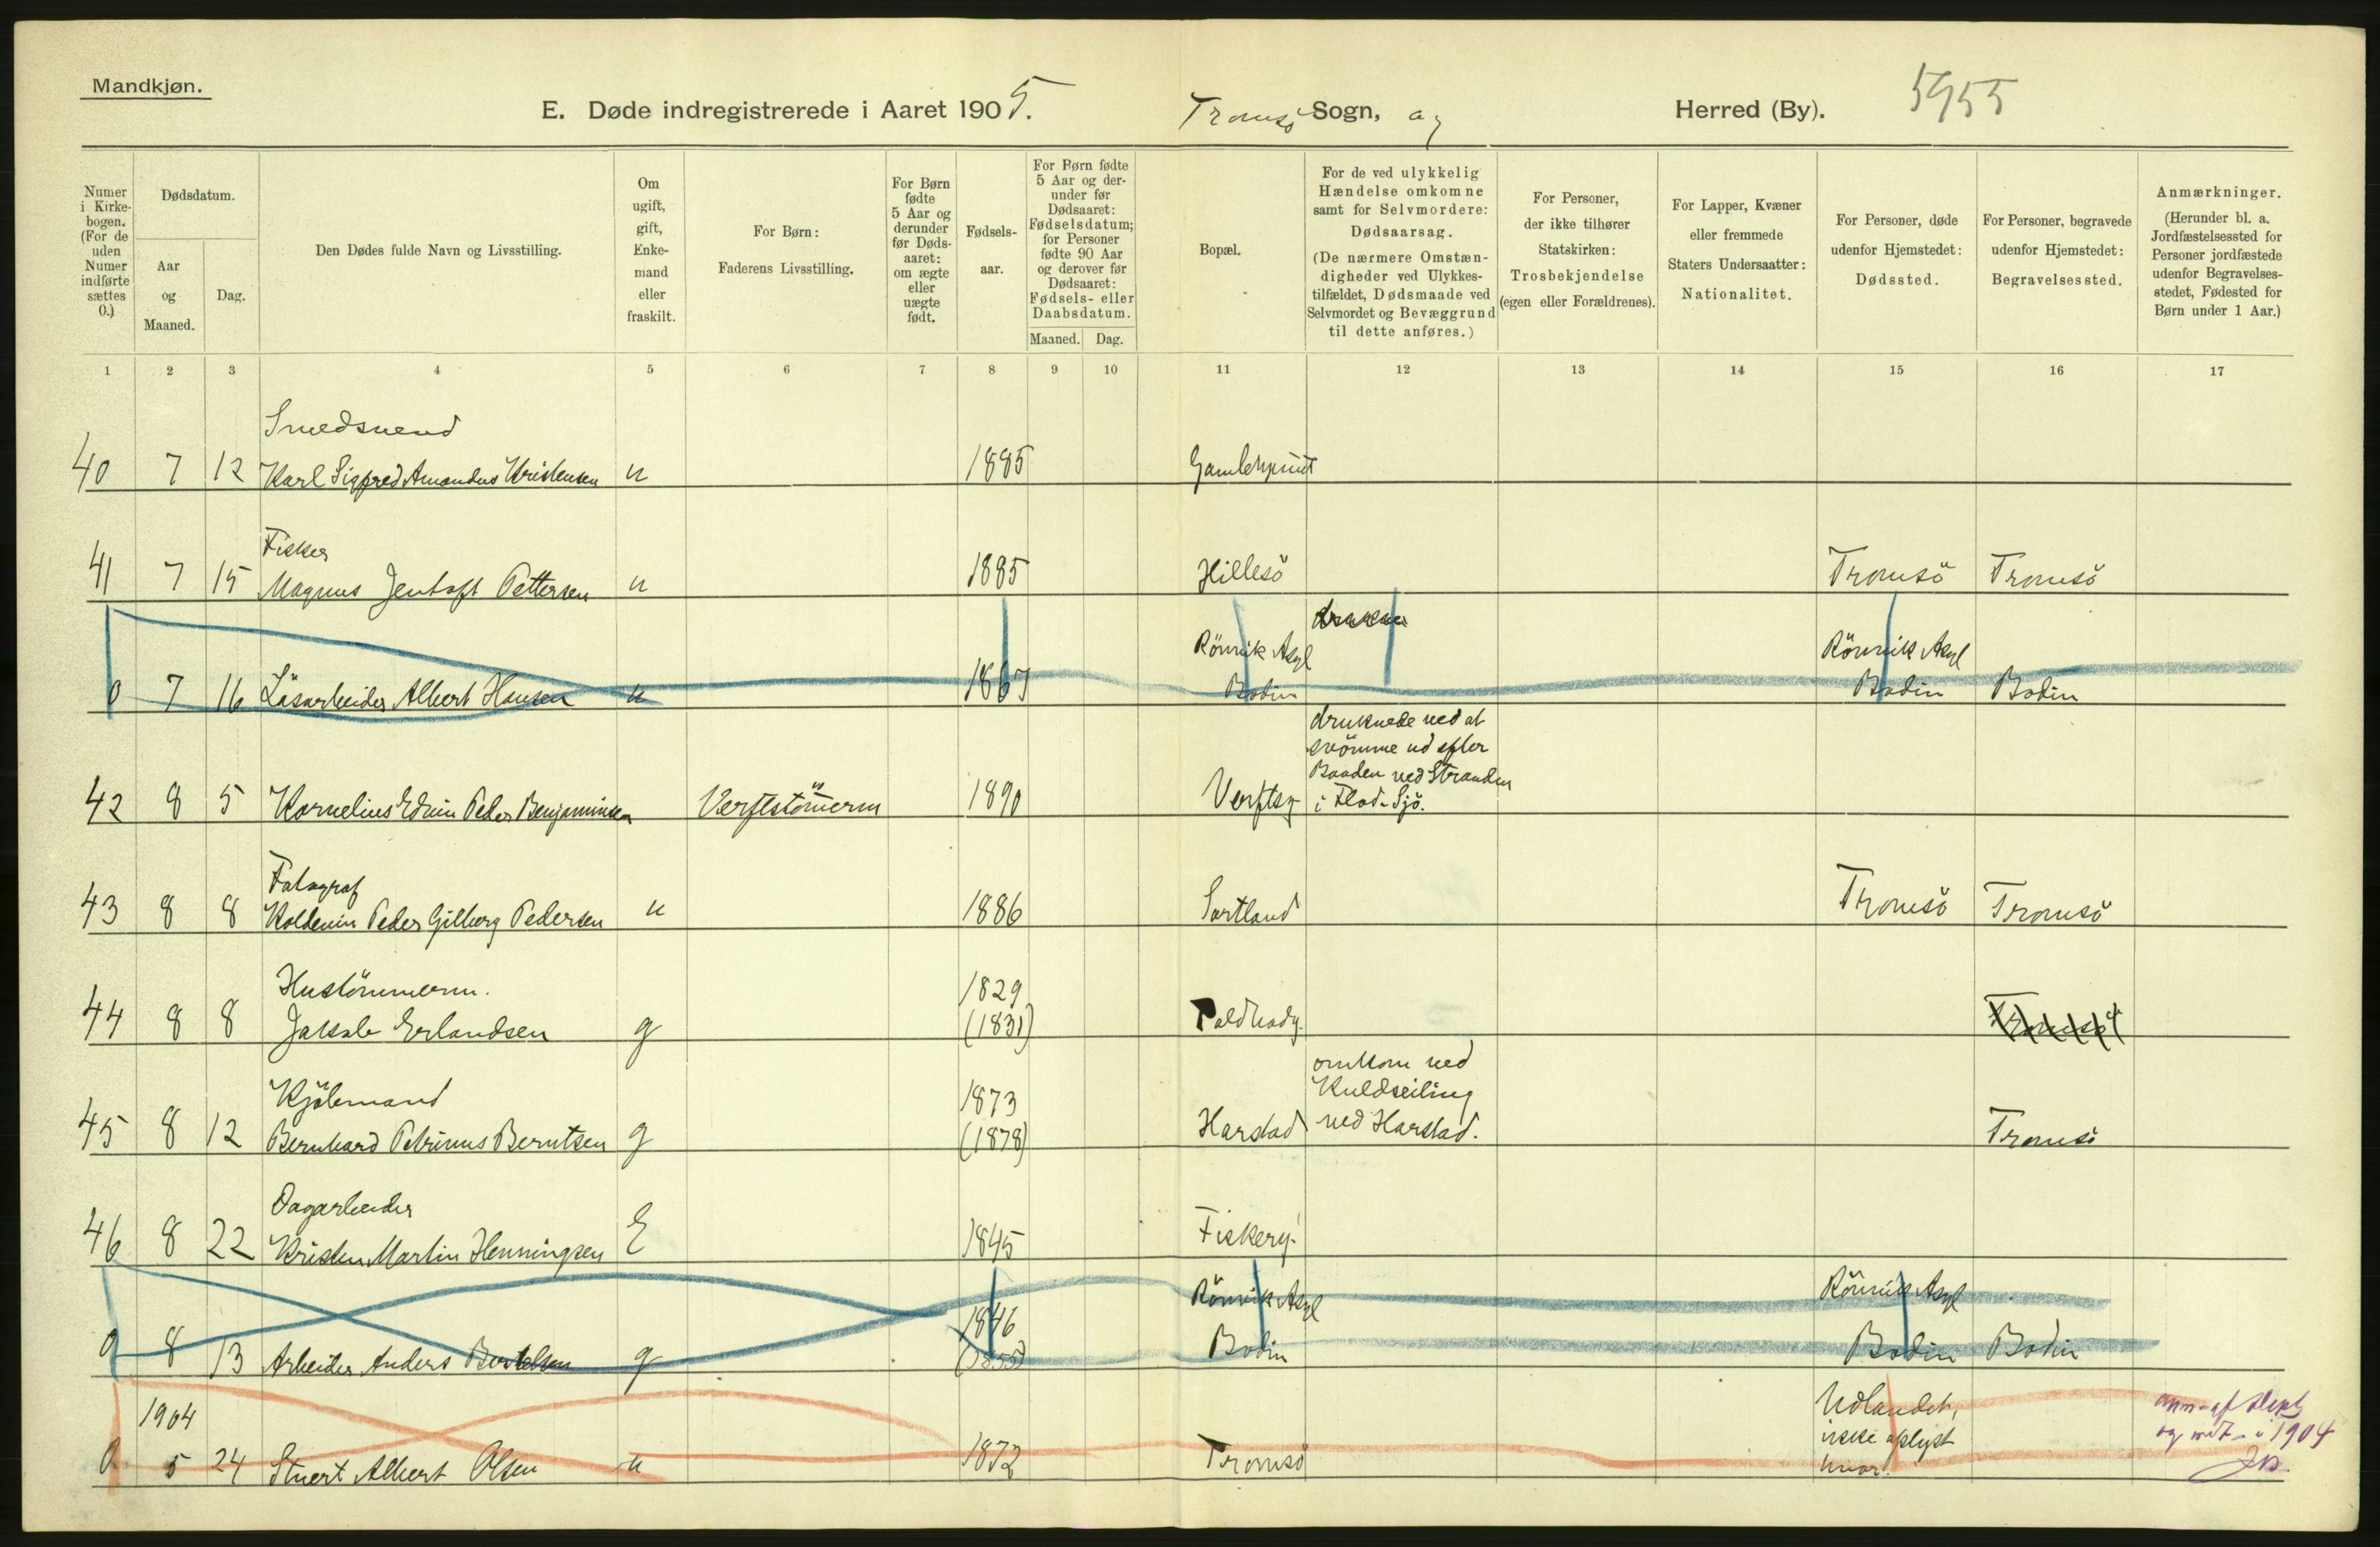 Mandkjøn.
E. Døde indregistrerede i Aaret 1905. Tromsö Sogn, og Herred (By). 5955
Numer
i Kirke-
bogen.
(For de
uden
Numer
indførte
sættes
0.)
Dødsdatum.
Aar
og
Maaned.
Dag.
Den Dødes fulde Navn og Livsstilling.
Om
ugift,
gift,
Enke-
mand
eller
fraskilt.
For Børn:
Faderens Livsstilling.
For Børn
fødte
5 Aar og
derunder
før Døds-
aaret:
om ægte
eller
uægte
født.
Fødsels-
aar.
For Børn fødte
5 Aar og der-
under før
Dødsaaret:
Fødselsdatum;
for Personer
fødte 90 Aar
og derover før
Dødsaaret:
Fødsels- eller
Daabsdatum.
Maaned. Dag.
Bopæl.
For de ved ulykkelig
Hændelse omkomne
samt for Selvmordere:
Dødsaarsag.
(De nærmere Omstæn-
digheder ved Ulykkes-
tilfældet, Dødsmaade ved
Selvmordet og Bevæggrund
til dette anføres.)
For Personer,
der ikke tilhører
Statskirken:
Trosbekjendelse
(egen eller Forældrenes).
For Lapper, Kvæner
eller fremmede
Staters Undersaatter:
Nationalitet.
For Personer, døde
udenfor Hjemstedet:
Dødssted.
For Personer, begravede
udenfor Hjemstedet:
Begravelsessted.
Anmærkninger.
(Herunder bl. a.
Jordfæstelsessted for
Personer jordfæstede
udenfor Begravelses-
stedet, Fødested for
Børn under 1 Aar.)
1 2 3 4 5 6 7 8 9 10 11 12 13 14 15 16 17
Smedsvend
40 7 12 Karl Sigfred Amandus Kristensen u 1885
Fisker
41 7 15 Magnus Jentoft Pettersen u 1885 Hillesö Tromsö Tromsö
Rönvik Asyl Rönvik Asyl
0 7 16 Lösarbeider Albert Hansen u 1867 Bodin Bodin Bodin
druknede ved at
svömme ud efter
Baaden ved Stranden
42 8 5 Kornelius Edvin Peder Benjaminsen Verftstömerm 1890 Verftsg i Flod-Sjö.
Fotograf
43 8 8 Peder Gilberg Pedersen u 1886 Sortland Tromsö Tromsö
Hustömmerm. 1829
44 8 8 Jakob Erlandsen g (1831) Tromsö
omkom ved
Kjöbmand 1873 Kuldseiling
45 8 12 Bernhard Petrinus Berntsen g (1878) Harstad ved Harstad. Tromsö
Dagarbeider
46 8 22 Kristen Martin Henningsen E 1845 Fiskerg.
1846 Rönvik Asyl Rönvik Asyl
0 8 13 Arbeider Anders Bertelsen g (1855) Bodin Bodin Bodin
1904 Udlandet,
ikke oplyst
0 5 24 Stuert Albert Olsen u 1872 Tromsö hvor.
i 1904